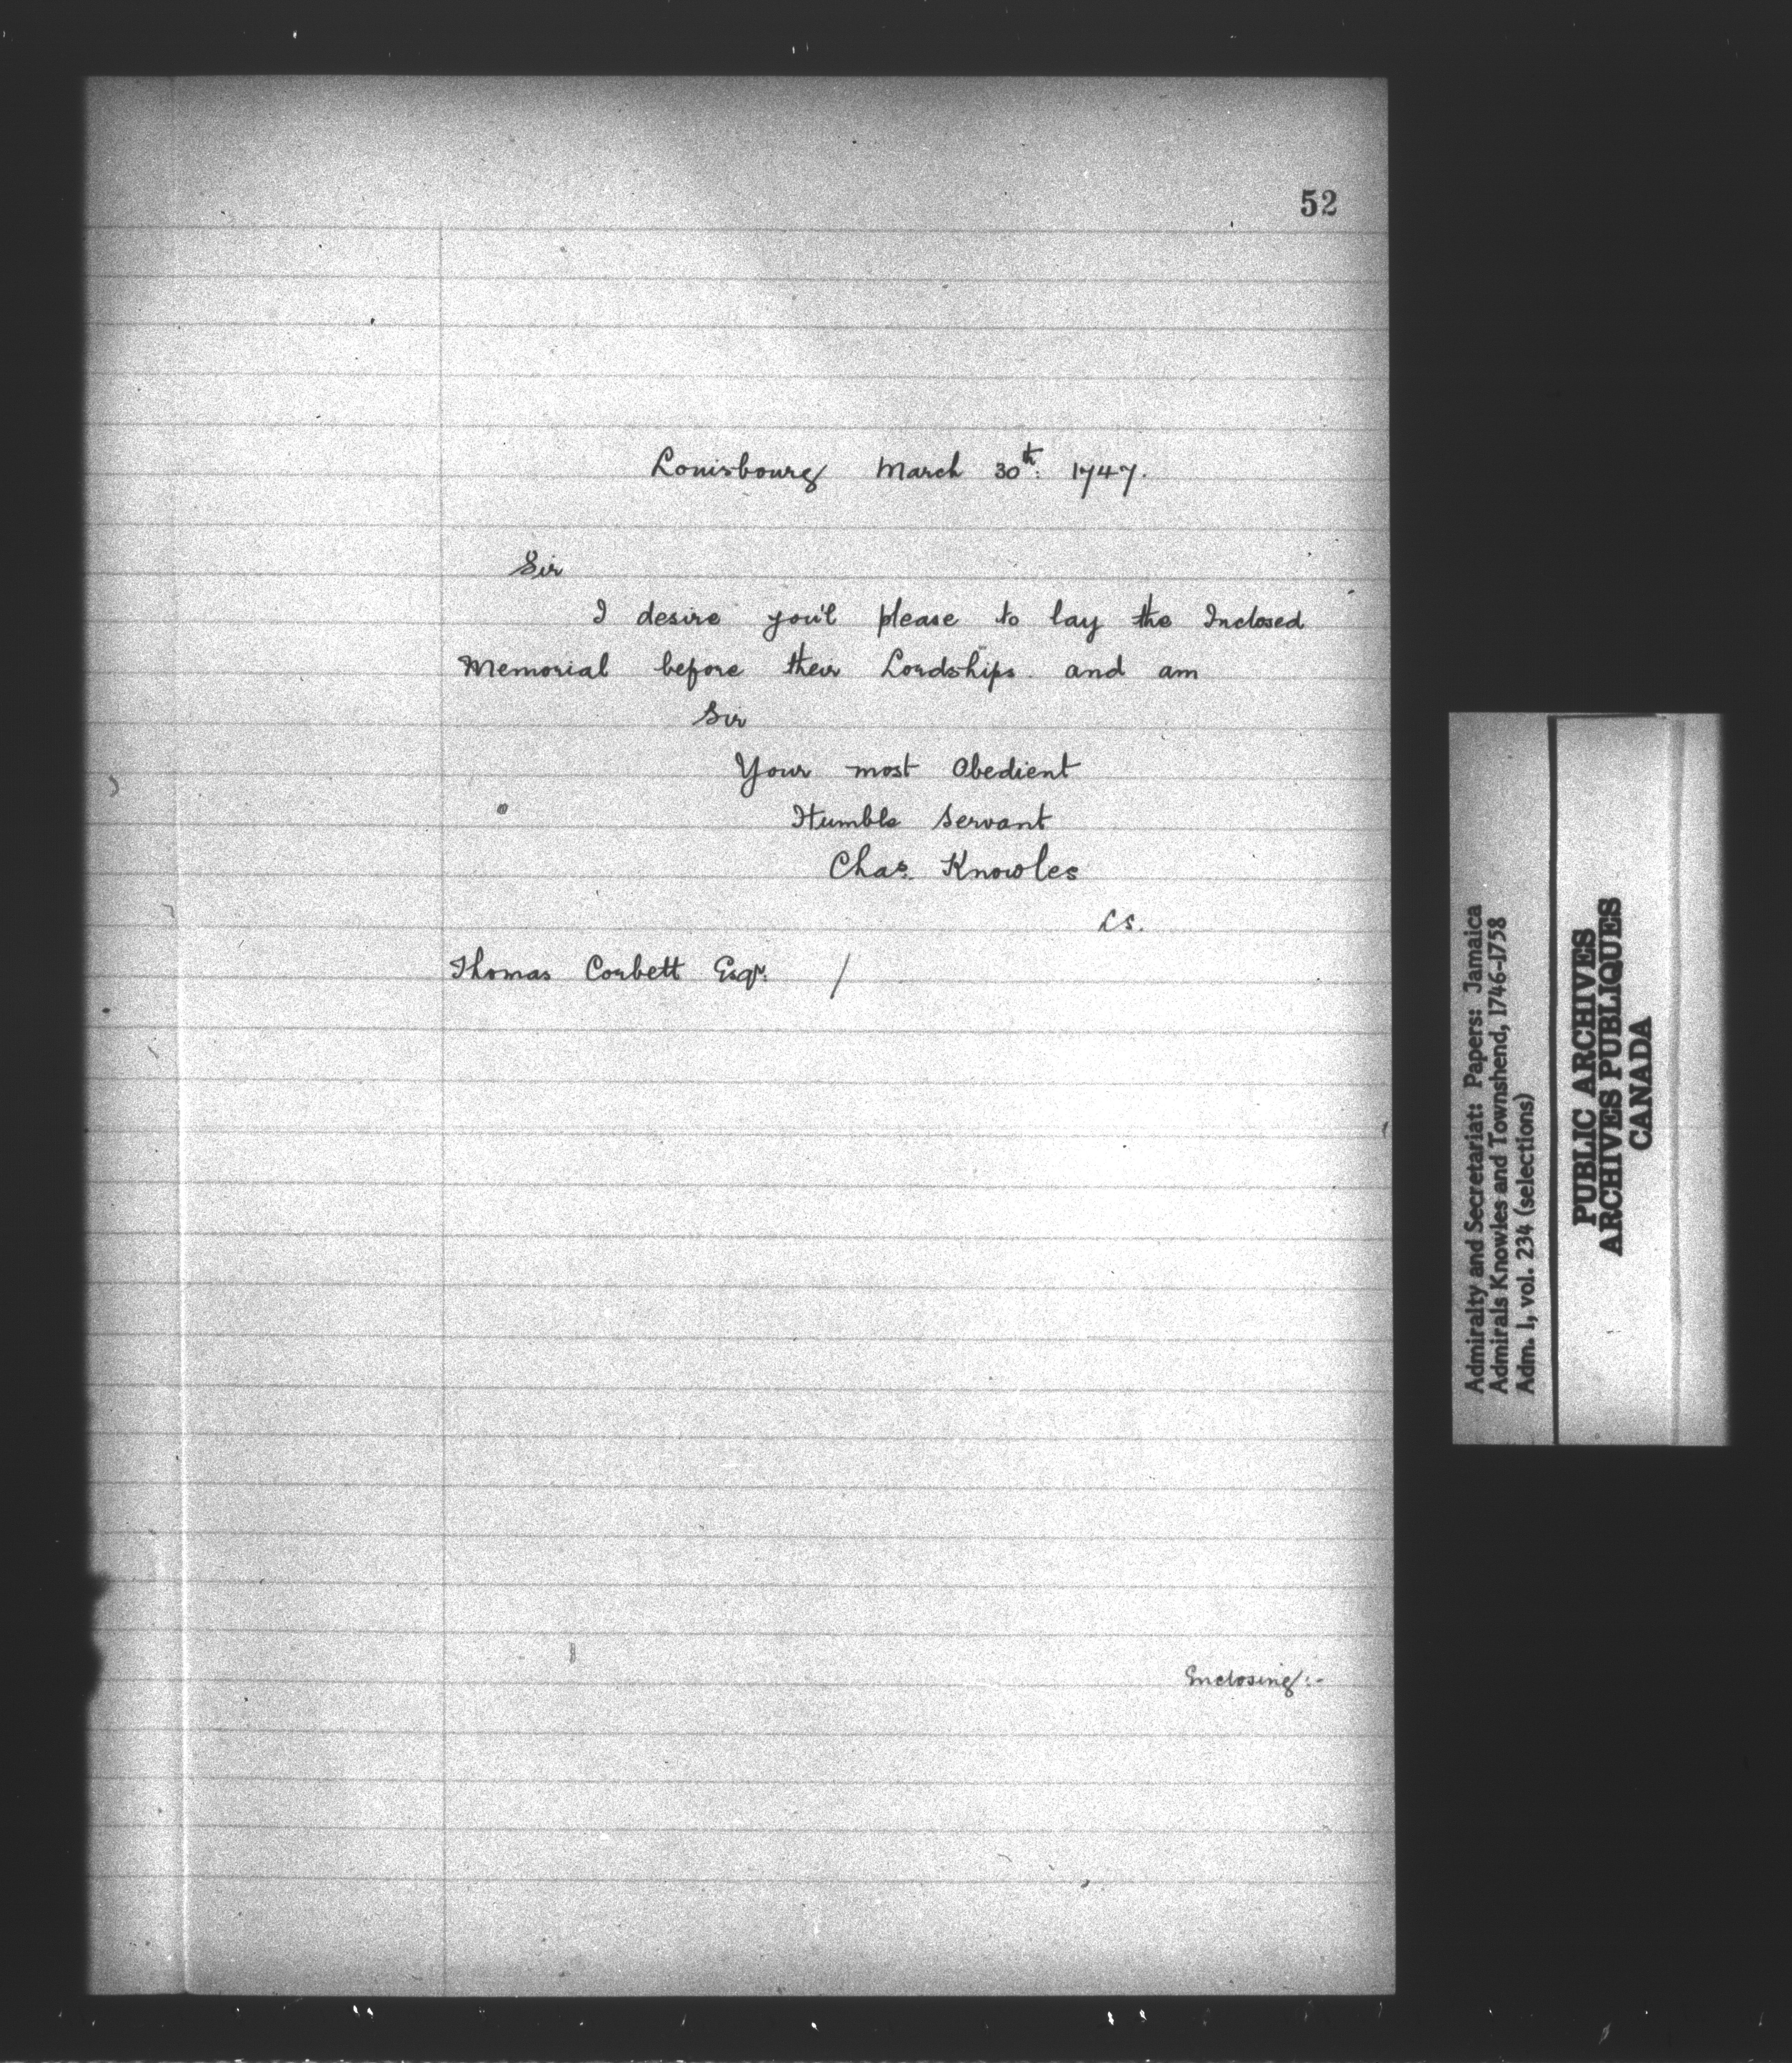 52
Louisbourg March 30th: 1747.
Sir
I desire you'l please to lay the Inclosed
Memorial before their Lordships and am
Sir
Your most Obedient
Humble Servant
Chas. Knowles
LS.
Thomas Corbett Esqr. /
Enclosing:-
Admiralty and Secretariat: Papers: Jamaica
Admirals Knowles and Townshend, 1746-1758
Adm. 1, vol. 234 (selections)
PUBLIC ARCHIVES
ARCHIVES PUBLIQUES
CANADA